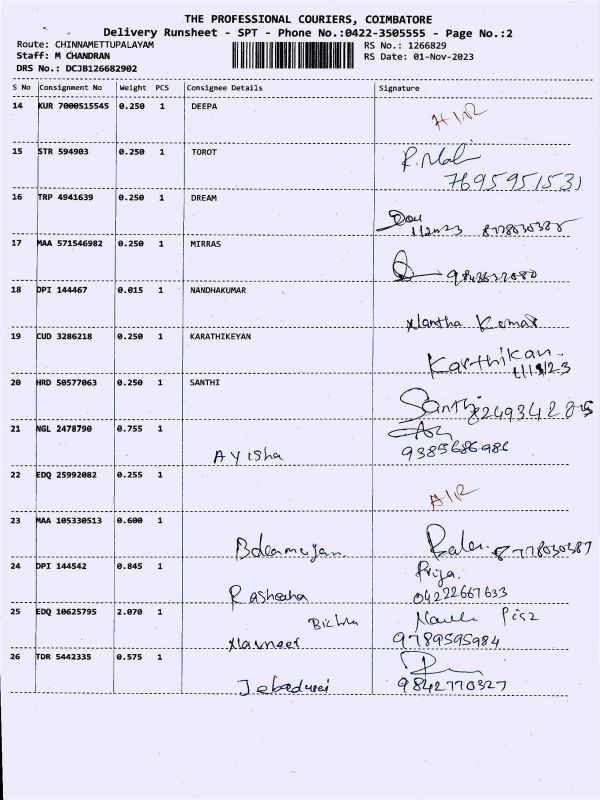 THE PROFESSIONAL COURIERS, COIMBATORE
Delivery Runsheet - SPT - Phone No.:0422-3505555 - Page No.:2
Route: CHINNAMETTUPALAYAM RS No.: 1266829
Staff: M CHANDRAN RS Date: 01-Nov-2023
DRS No.: DCJB126682902
S No Consignment No Weight PCS Consignee Details Signature
14 KUR 7000515545 0.250 1 DEEPA
15 STR 594903 0.250 1 TOROT
7695951531
16 TRP 4941639 0.250 1 DREAM
17 MAA 571546982 0.250 1 MIRRAS
18 DPI 144467 0.015 1 NANDHAKUMAR
Kumar
19 CUD 3286218 0.250 1 KARATHIKEYAN
Karthikan
20 HRD 50577063 0.250 1 SANTHI
Santhi
21 NGL 2478790 0.755 1
AYISha 9385686986
22 EDQ 25992082 0.255 1
AIR
23 MAA 105330513 0.600 1
24 DPI 144542 0.845 1
Priya.
04222667633
25 EDQ 10625795 2.070 1
Navneet 9789595984
26 TDR 5442335 0.575 1
Jebadurai 9842770327